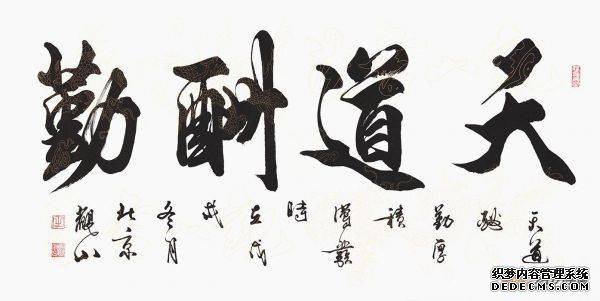 天道酬勤
天道
酬
勤厚
積
薄發
時
在戊
戌
冬月
北京
觀山
织梦内容管理系统
DEDECMS.COM